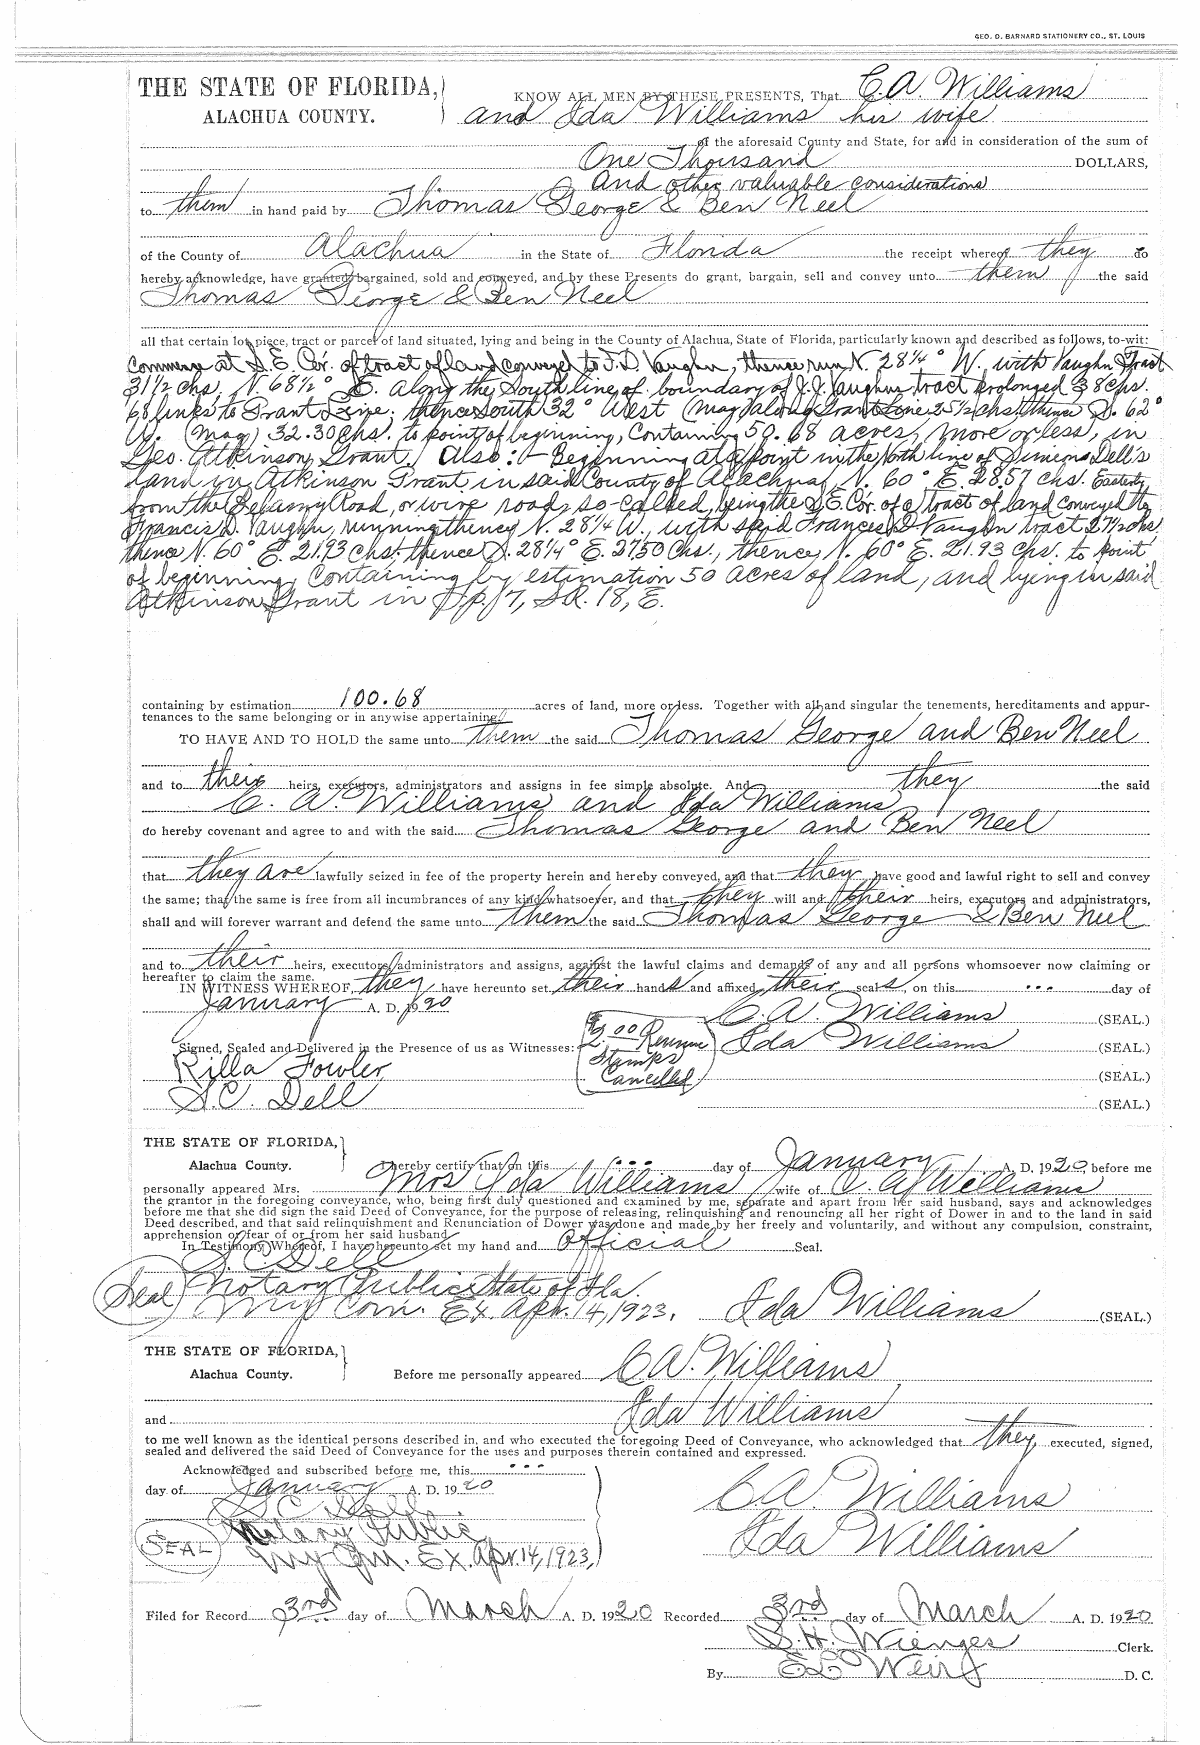 GEO. D. BARNARD STATIONERY CO., ST. LOUIS
THE STATE OF FLORIDA, KNOW ALL MEN BY THESE PRESENTS, That C.A. Williams
ALACHUA COUNTY. and Ida Williams his wife
of the aforesaid County and State, for and in consideration of the sum of
One Thousand DOLLARS,
And other valuable considerations
to them in hand paid by Thomas George & Ben Neel
of the County of Alachua in the State of Florida the receipt whereof they do
hereby acknowledge, have granted, bargained, sold and conveyed, and by these Presents do grant, bargain, sell and convey unto them the said
Thomas George & Ben Neel
all that certain lot, piece, tract or parcel of land situated, lying and being in the County of Alachua, State of Florida, particularly known and described as follows, to-wit:
Commence at S.E. Cor. of tract of land conveyed to F.D. Vaughn, thence run N. 28¼° W. with Vaughn Tract
31½ chs, N 68½° E. along the South line of boundary of J.J. Vaughns tract prolonged 38 chs.
68 links to Grant Line; thence South 32° West (Mag) along Grant Line 25½ chs. thence S. 62°
W. (Mag) 32.30 chs. to point of beginning, Containing 50.68 acres, more or less, in
Geo. Atkinson Grant. Also:- Beginning at a point in the North line of Simeon Dell's
land in Atkinson Grant in said County of Alachua, N. 60° E. 28.57 chs. Easterly
from the Belamy Road, or wire road, so-called, being the S.E. Cor. of a tract of land conveyed to
Francis D. Vaughn, running thence N. 28¼ W., with said Frances D. Vaughn tract 27½ chs
thence N. 60° E. 21.93 chs. thence S. 28¼° E. 2750 chs., thence N. 60° E. 21.93 chs. to point
of beginning, Containing by estimation 50 acres of land, and lying in said
Atkinson Grant in Tp. 7, S.R. 18, E.
containing by estimation 100.68 acres of land, more or less. Together with all and singular the tenements, hereditaments and appur-
tenances to the same belonging or in anywise appertaining.
TO HAVE AND TO HOLD the same unto them the said Thomas George and Ben Neel
and to their heirs, executors, administrators and assigns in fee simple absolute. And they the said
C. A. Williams and Ida Williams
do hereby covenant and agree to and with the said Thomas George and Ben Neel
that they are lawfully seized in fee of the property herein and hereby conveyed, and that they have good and lawful right to sell and convey
the same; that the same is free from all incumbrances of any kind whatsoever, and that they will and their heirs, executors and administrators,
shall and will forever warrant and defend the same unto them the said Thomas George & Ben Neel
and to their heirs, executors, administrators and assigns, against the lawful claims and demands of any and all persons whomsoever now claiming or
hereafter to claim the same.
IN WITNESS WHEREOF, they have hereunto set their hands and affixed their seals, on this ... day of
January A. D. 1920
C. A. Williams (SEAL.)
Signed, Sealed and Delivered in the Presence of us as Witnesses: Ida Williams (SEAL.)
Revenue
Stamps
Cancelled
Rilla Fowler (SEAL.)
S.C. Dell (SEAL.)
THE STATE OF FLORIDA,
Alachua County. I hereby certify that on this ... day of January A. D. 1920, before me
personally appeared Mrs. Mrs Ida Williams wife of C. A. Williams
the grantor in the foregoing conveyance, who, being first duly questioned and examined by me, separate and apart from her said husband, says and acknowledges
before me that she did sign the said Deed of Conveyance, for the purpose of releasing, relinquishing and renouncing all her right of Dower in and to the land in said
Deed described, and that said relinquishment and Renunciation of Dower was done and made by her freely and voluntarily, and without any compulsion, constraint,
apprehension or fear of or from her said husband.
In Testimony Whereof, I have hereunto set my hand and official Seal.
S. C. Dell
Seal Notary Public State of Fla.
My Com. Ex. Apr. 14, 1923. Ida Williams (SEAL.)
THE STATE OF FLORIDA,
Alachua County. Before me personally appeared C.A. Williams
and Ida Williams
to me well known as the identical persons described in, and who executed the foregoing Deed of Conveyance, who acknowledged that they executed, signed,
sealed and delivered the said Deed of Conveyance for the uses and purposes therein contained and expressed.
Acknowledged and subscribed before me, this ...
day of January A. D. 1920 C.A. Williams
S C Dell
SEAL Notary Public Ida Williams
My Com. Ex. Apr. 14, 1923,
Filed for Record 3rd day of March A. D. 1920 Recorded 3rd day of March A. D. 1920
S. H. Wienges Clerk.
By E L Weir D. C.